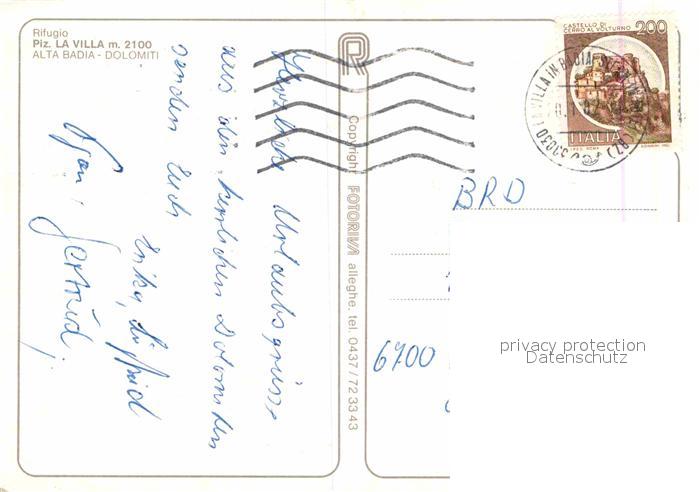 Rifugio
Piz. LA VILLA m. 2100
ALTA BADIA - DOLOMITI
Herzliche Urlaubsgrüsse
aus den herrlichen Dolomiten
senden Euch
Erika,
Gertrud,
Copyright FOTORIVA alleghe. tel. 0437/723343
CASTELLO DI
CERRO AL VOLTURNO
200
ITALIA
LA VILLA IN BADIA
(BZ)
BRD
6700
privacy protection
Datenschutz